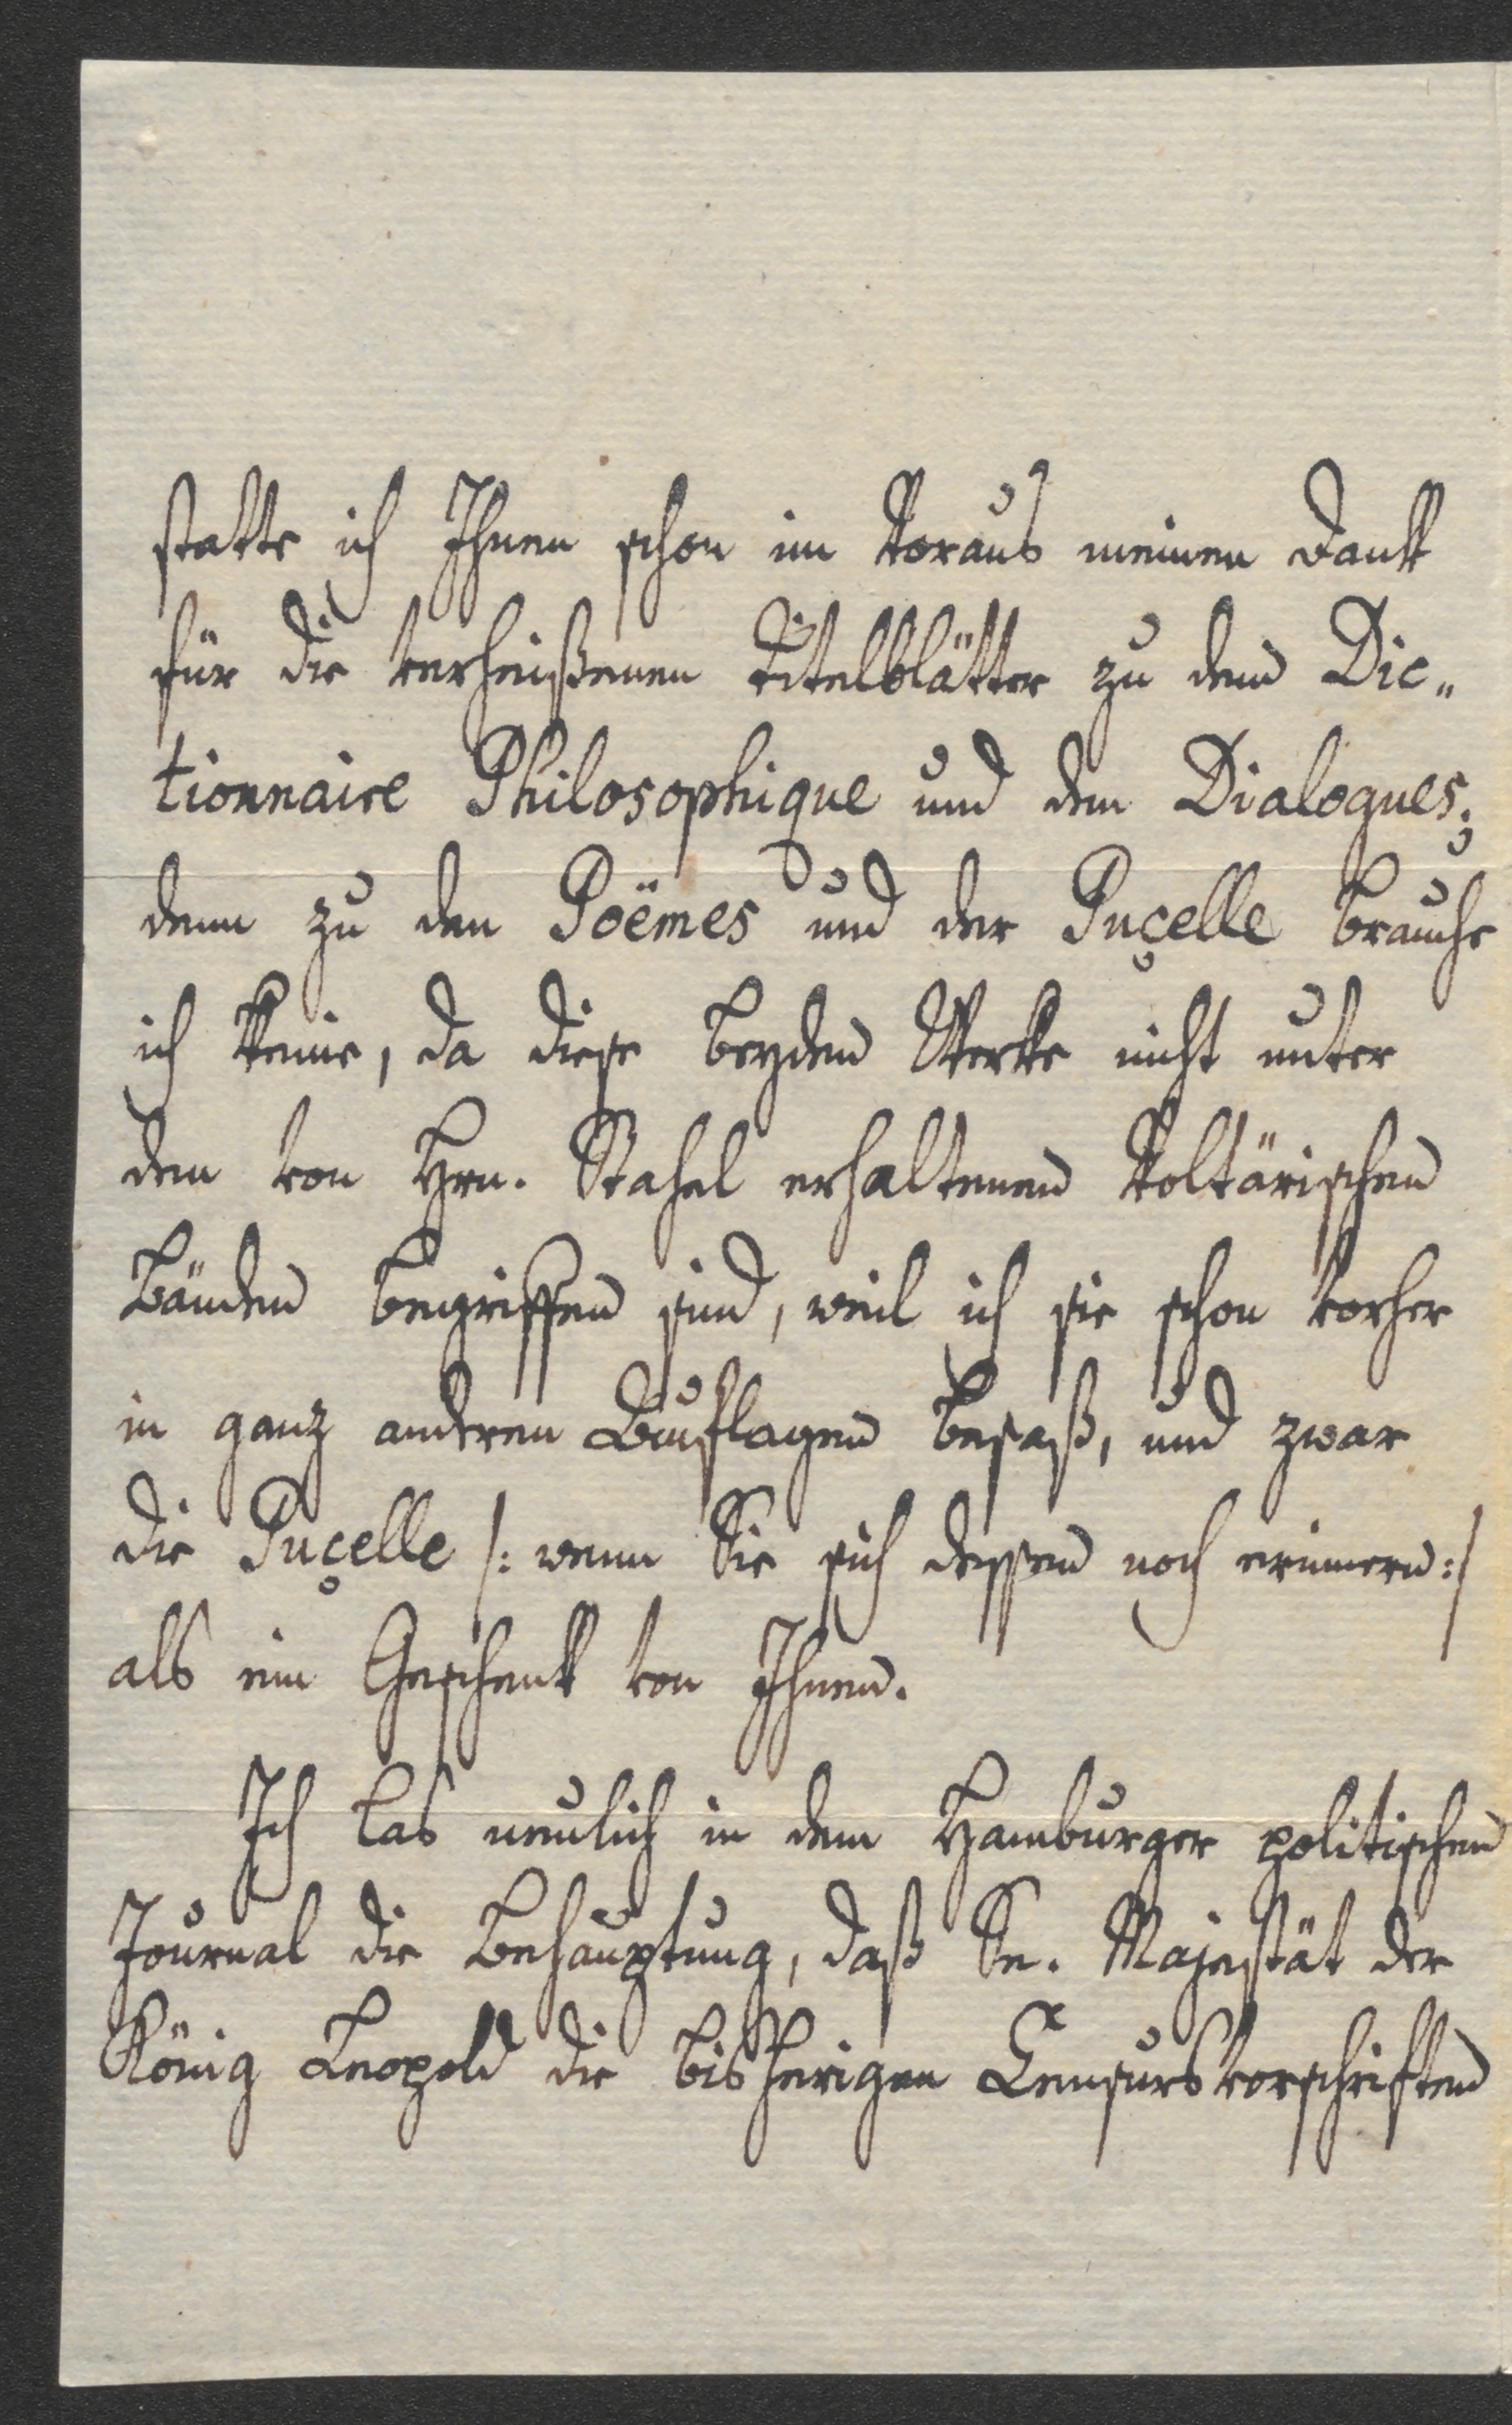 statte ich Ihnen schon im Voraus meinen Dank
für die verheißenen Titelblätter zu dem Dic„
tionnaire Philosophique und den Dialogues;
denn zu den Poëmes und der Puçelle brauche
ich keine, da diese beyden Werke nicht unter
den von Hrn. Stahel erhaltenen Voltärischen
Bänden begriffen sind, weil ich sie schon vorher
in ganz anderen Auflagen besaß, und zwar
die Puçelle /: wenn Sie sich dessen noch erinnern :/
als ein Geschenk von Ihnen.
Ich las neulich in dem Hamburger politischen
Journal die Behauptung, daß Se. Majestät der
König Leopold die bisherigen Censursvorschriften